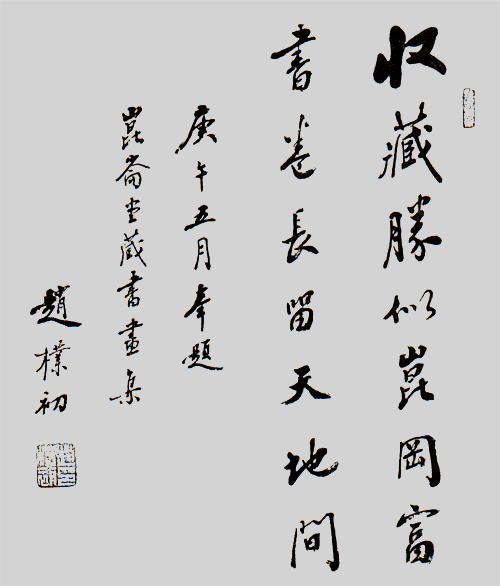 收藏勝似崑岡富
書卷長留天地間
庚午五月奉題
崑崙堂藏書畫集
趙樸初